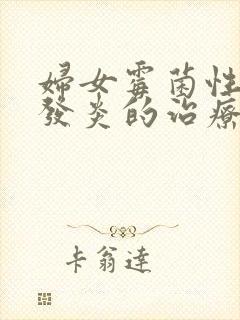 婦女霉菌性
發炎的治療
卡翁達